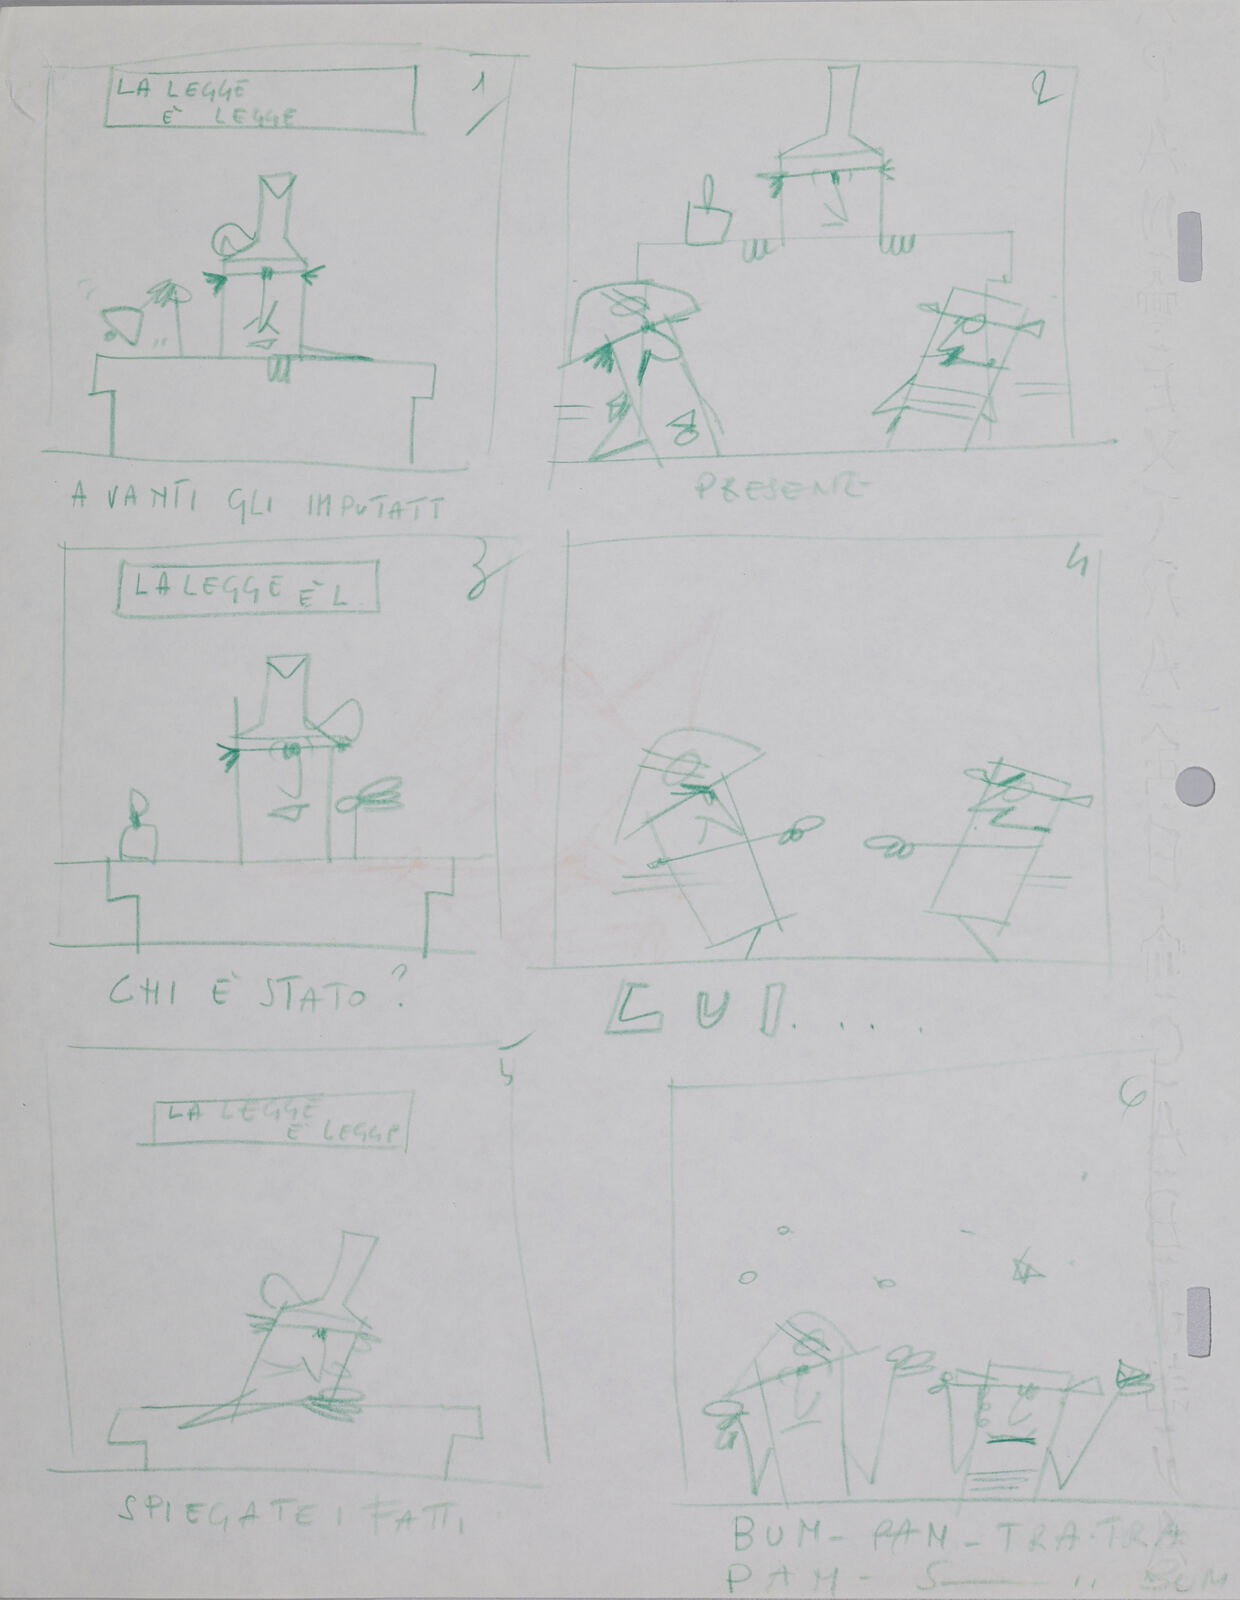 1
LA LEGGE
È LEGGE
AVANTI GLI IMPUTATI
2
PRESENTE
3
LA LEGGE È L
CHI È STATO ?
4
LUI.....
5
LA LEGGE
È LEGGE
SPIEGATE I FATTI
6
BUM - PAN - TRA.TRA
PAM - S
BUM